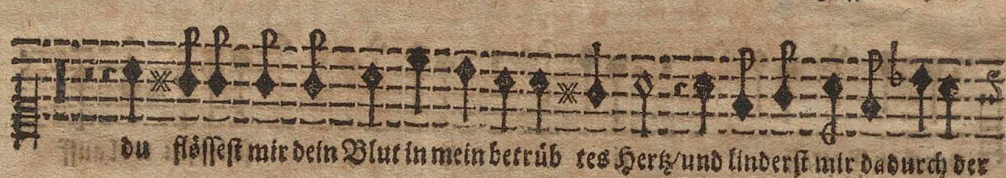 du flösſest mir dein Blut in mein betrüb tes Hertz/und linderst mir dadurch der